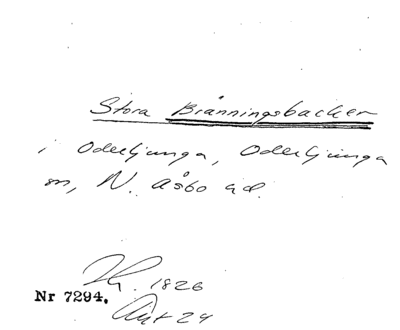 Stora Bränningsbacken
i Oderljunga, Oderljunga
sn, N. Åsbo hd.
1826
Nr 7294.
Akt 24